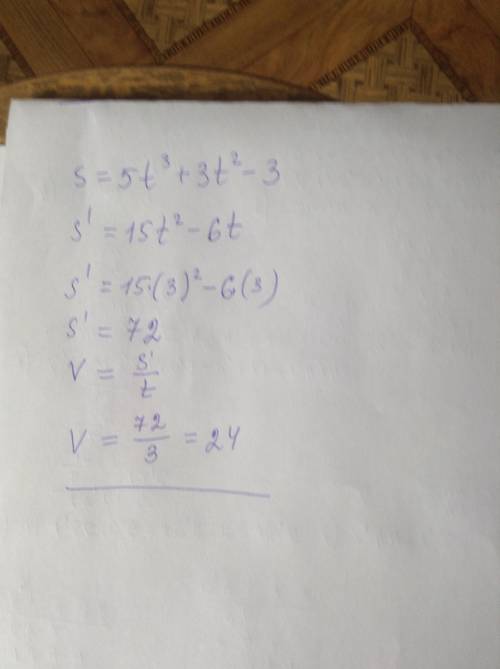 S = 5t³ + 3t² - 3
S' = 15t² - 6t
S' = 15·(3)² - 6(3)
S' = 72
V = S'/t
V = 72/3 = 24